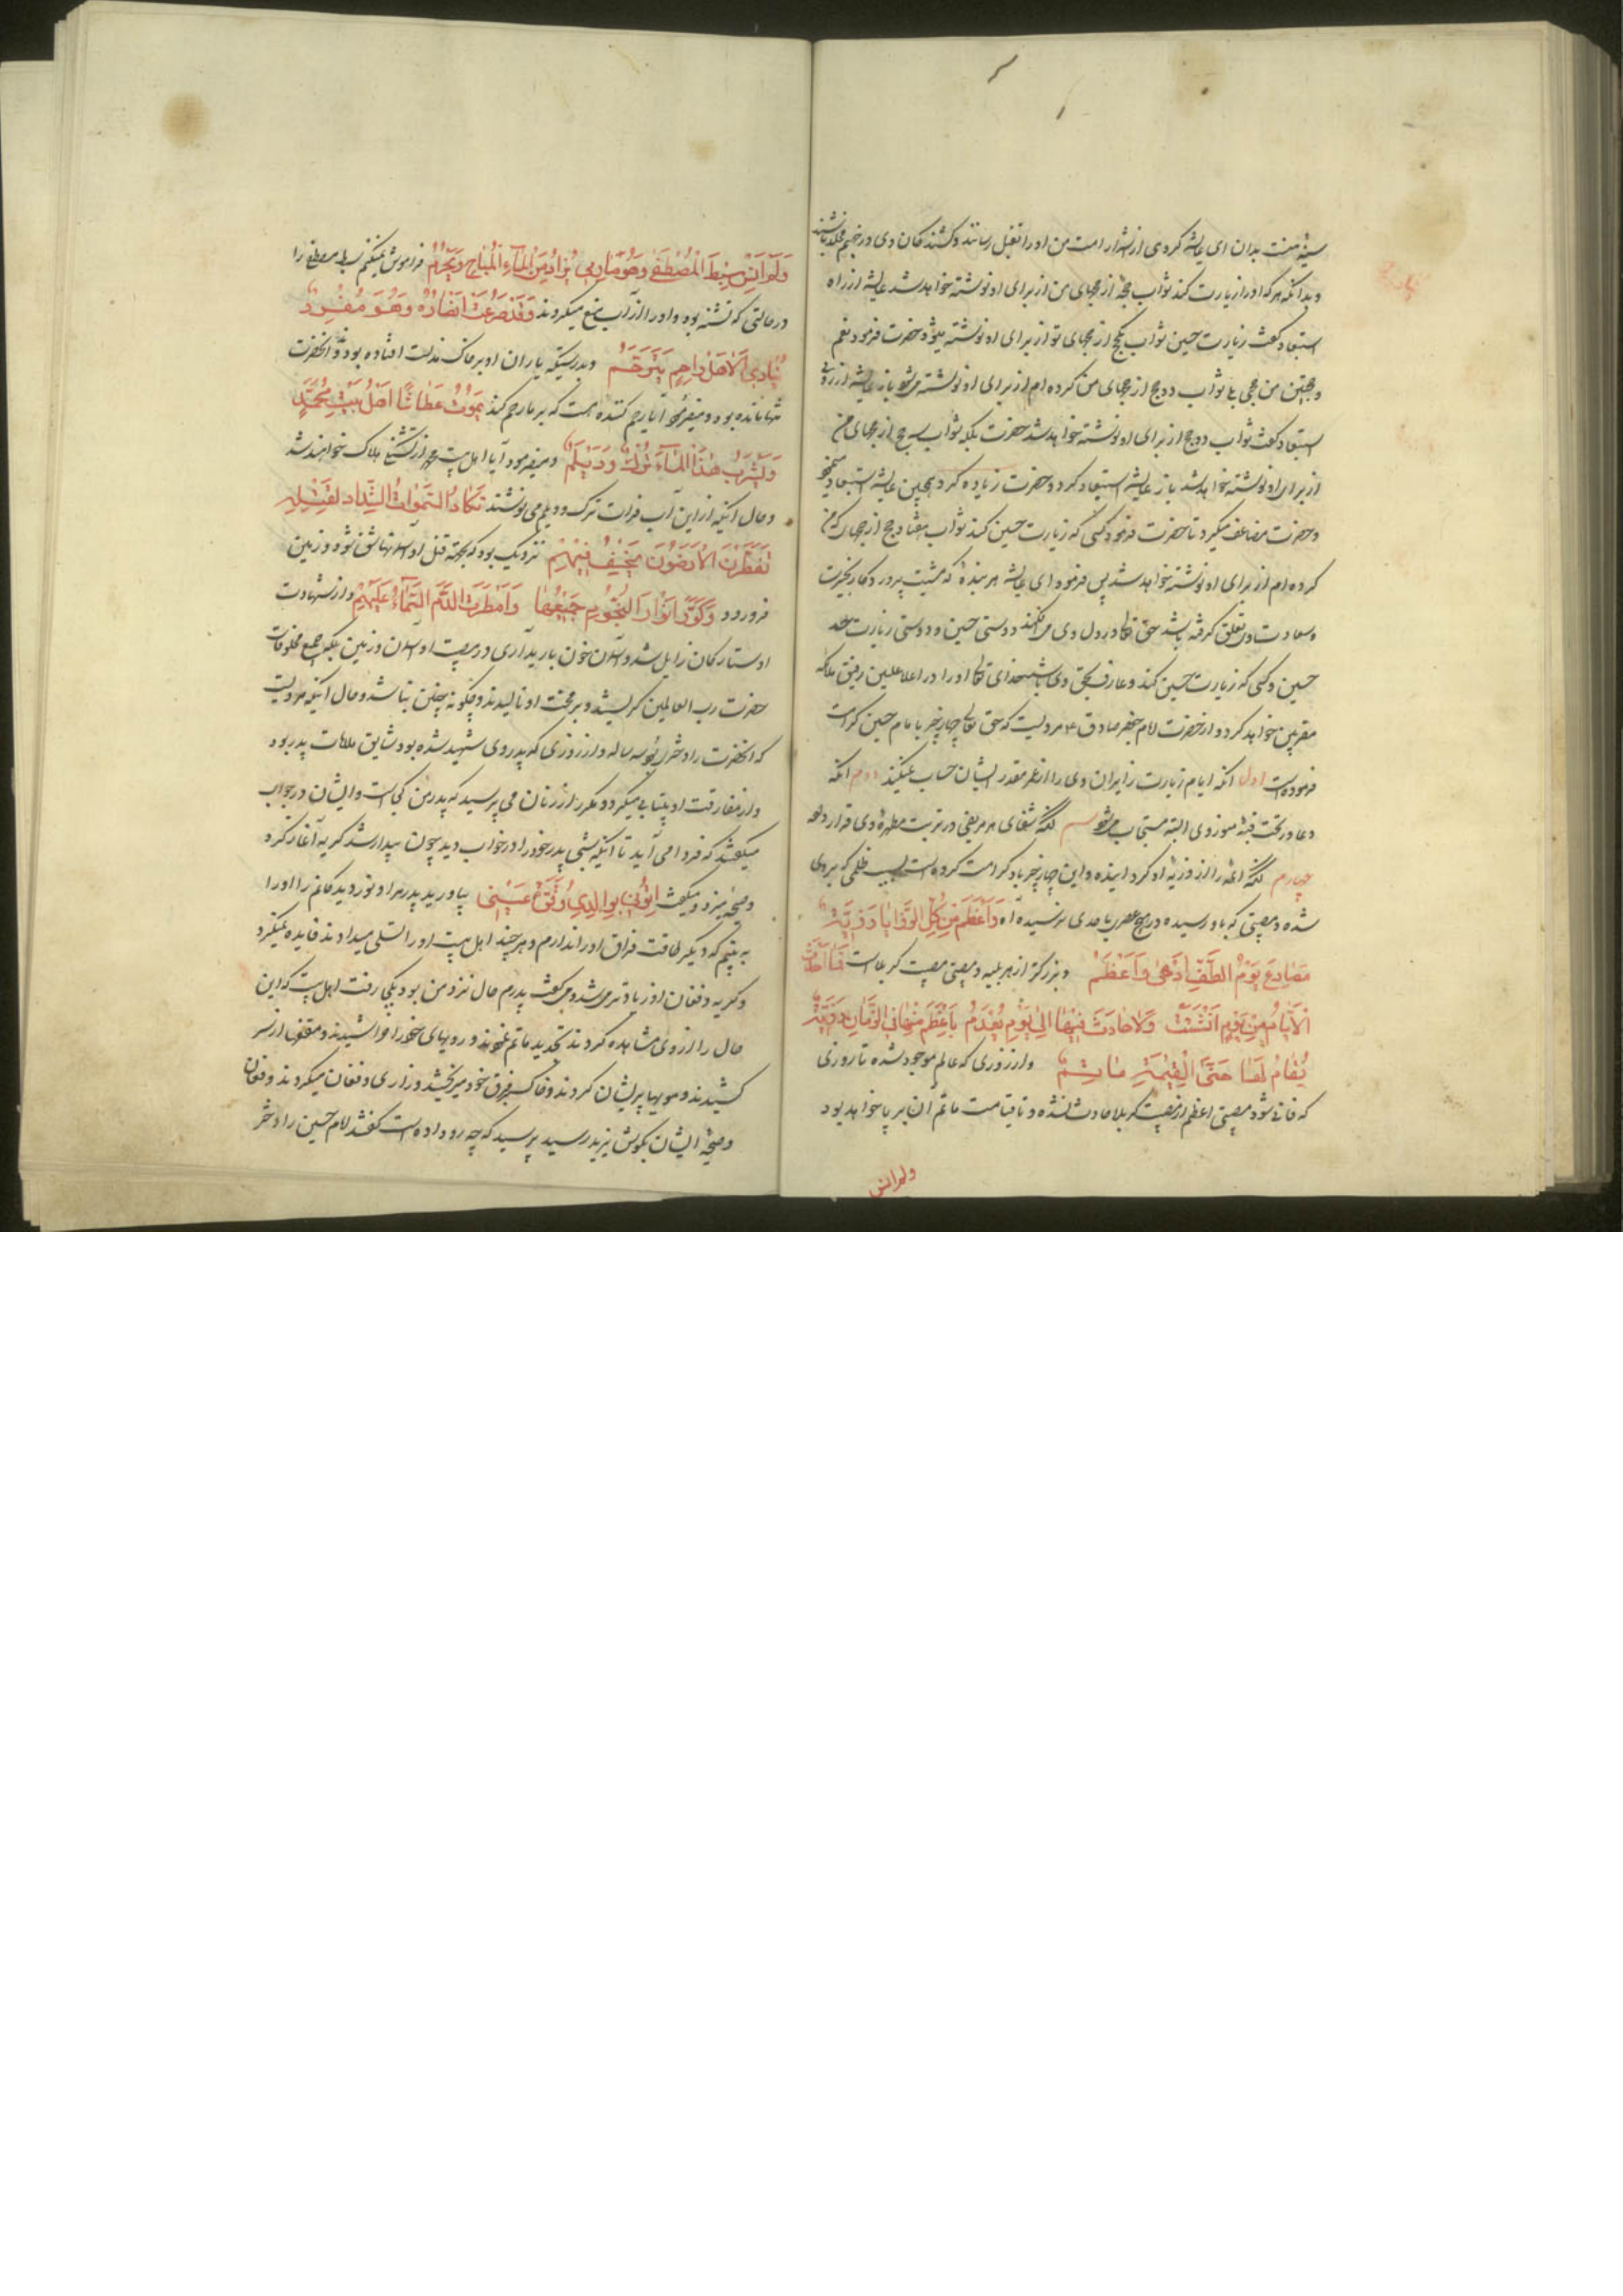 سینهٔ منت بدان ای عایشه کروی از اشرار امت من او را بقتل رسانند و کشندکان وی در جحیم مخلد باشند
و بدانکه هر که او را زیارت کند ثواب حجهٔ از حجهای من از برای او نوشته خواهد شد عایشه از راه
استبعاد کفت زیارت حسین ثواب یکحج از حجهای تو از برای او نوشته میشود حضرت فرمود نعم
و حجتین من حججی بلی ثواب دو حج از حجهای من کرده ام از برای او نوشته میشود باز عایشه از روی
استبعاد کفت ثواب دو حج از برای او نوشته خواهد شد حضرت بلکه ثواب سه حج از حجهای من
از برای او نوشته خواهد شد باز عایشه استبعاد کرد و حضرت زیاده کرد همچنین عایشه استبعاد مینمود
و حضرت مضاعف میکرد تا حضرت فرمود کسی که زیارت حسین کند ثواب هفتاد حج از حجها که من
کرده ام از برای او نوشته خواهد شد پس فرمود ای عایشه هر بندهٔ که مشیت پروردکار بخیریت
و سعادت وی تعلق کرفته باشد حق تعالی در دل وی می افکند دوستی حسین و دوستی زیارت
حسین و کسی که زیارت حسین کند و عارف بحق وی باشد خدای تعالی او را در اعلا علیین رفیق ملائکه
مقربین خواهد کرد و از حضرت امام جعفر صادق ع مرویست که حق تعالی چهار چیز با امام حسین کرامت
فرموده است اول انکه ایام زیارت زایران وی را از عمر مقدر ایشان حساب نمیکند دوم انکه
دعا در تحت قبهٔ منور وی البته مستجاب میشود سیم انکه شفای هر مریضی در تربت مطهرهٔ وی قرار داده
چهارم انکه ائمه را از ذریهٔ او کردانیده و این چهار چیز باو کرامت کرده است بسبب ظلمی که بر وی
شده و مصیبتی که باو رسیده در هیچ عصر باحدی نرسیده آه وَاَعْظَمَ مِنْ کُلِّ الرَّزایا رَزِیَّةً
مَصارِعُ یَوْمِ الطَّفِّ اَدْهی وَاَعْظَمُ و بزرکتر از هر بلیه و مصیبتی مصیبت کربلاست فَما اَحْدَثَ
الْاَیّامُ مِنْ یَوْمٍ اُنْشِئَتْ وَلاحادِثٌ فیها اِلی یَوْمِ تُعْدَمُ بِاَعْظَمَ مِنْها فِی الزَّمانِ رَزِیَّةً
یُقامُ لَها حَتَّی الْقِیمَةِ مَأْتَمُ و از روزی که عالم موجود شده تا روزی
که فانی شود مصیبتی اعظم از مصیبت کربلا حادث نشده و تا قیامت ماتم ان بر پا خواهد بود
ولم انس
وَلَمْ اَنْسَ سِبْطَ الْمُصْطَفی وَهُوَ ظامِئٌ یُزادُ مِنَ الْمآءِ الْمُباحِ وَیُحْرَمُ فراموش نمیکنم سبط مصطفی را
در حالتی که تشنه بود و او را از آب منع میکردند وَقَدْ صُرِعَتْ اَنْصارُهُ وَهُوَ مُفْرَدٌ
یُنادی اَلا هَلْ راحِمٍ یَتَرَحَّمُ و بدرستیکه یاران او بر خاک مذلت افتاده بودند و آنحضرت
تنها مانده بود و میفرمود آیا رحم کننده هست که بر ما رحم کند یَمُوتُ عَطاشًا اَهْلُ بَیْتِ مُحَمَّدٍ
وَیَشْرَبُ هٰذَا الْمآءَ تُرْکٌ وَدَیْلَمُ و میفرمود آیا اهل بیت محمد از تشنکی هلاک خواهند شد
و حال آنکه از این آب فرات ترک و دیلم می نوشند تَکادُ السَّمٰواتُ الشِّدادُ لِقَتْلِهِ
تَفَطَّرْنَ الْاَرَضُونَ یُخْسِفُ فیهِمُ نزدیک بود که بجهة قتل او آسمانها شق شود و زمین
فرورود وَکُوِّرَ اَنْوارُ النُّجُومِ جَمیعُها وَاَمْطَرَتِ الدَّمَ السَّمآءُ عَلَیْهِمُ و از شهادت
او ستارکان زایل شد و آسمان خون بارید آری در مصیبت او آسمان و زمین بلکه جمیع مخلوقات
حضرت رب العالمین کریستند و بر محنت او نالیدند و چکونه چنین نباشد و حال انکه مرویست
که انحضرت را دختری بود سه ساله و از روزی که پدر وی شهید شده بود شایق ملاقات پدر بود
و از مفارقت او بیتابی میکرد و مکرر از زنان می پرسید که پدر من کجاست و ایشان در جواب
میکفتند که فردا می آید تا آنکه شبی پدر خود را در خواب دید چون بیدار شد کریه آغاز کرد
و صیحه میزد و میکفت اِئْتُونی بِوالِدی وَقُرَّةِ عَیْنی بیاورید پدر مرا و نور دیدکانم را او را
به بینم که دیکر طاقت فراق او را ندارم و هر چند اهل بیت او را تسلی میدادند فایده نمیکرد
و کریه و فغان او زیادتر می شد و می کفت پدرم حال نزد من بود بکجا رفت اهل بیت که این
حال را از وی مشاهده کردند تجدید ماتم نمودند و رویهای خود را خراشیدند و مقنعها از سر
کشیدند و مویها پریشان کردند و خاک بفرق خود میریختند و زاری و فغان میکردند و فغان
و صیحهٔ ایشان بکوش یزید رسید پرسید که چه رو داده است کفتند امام حسین را دختر